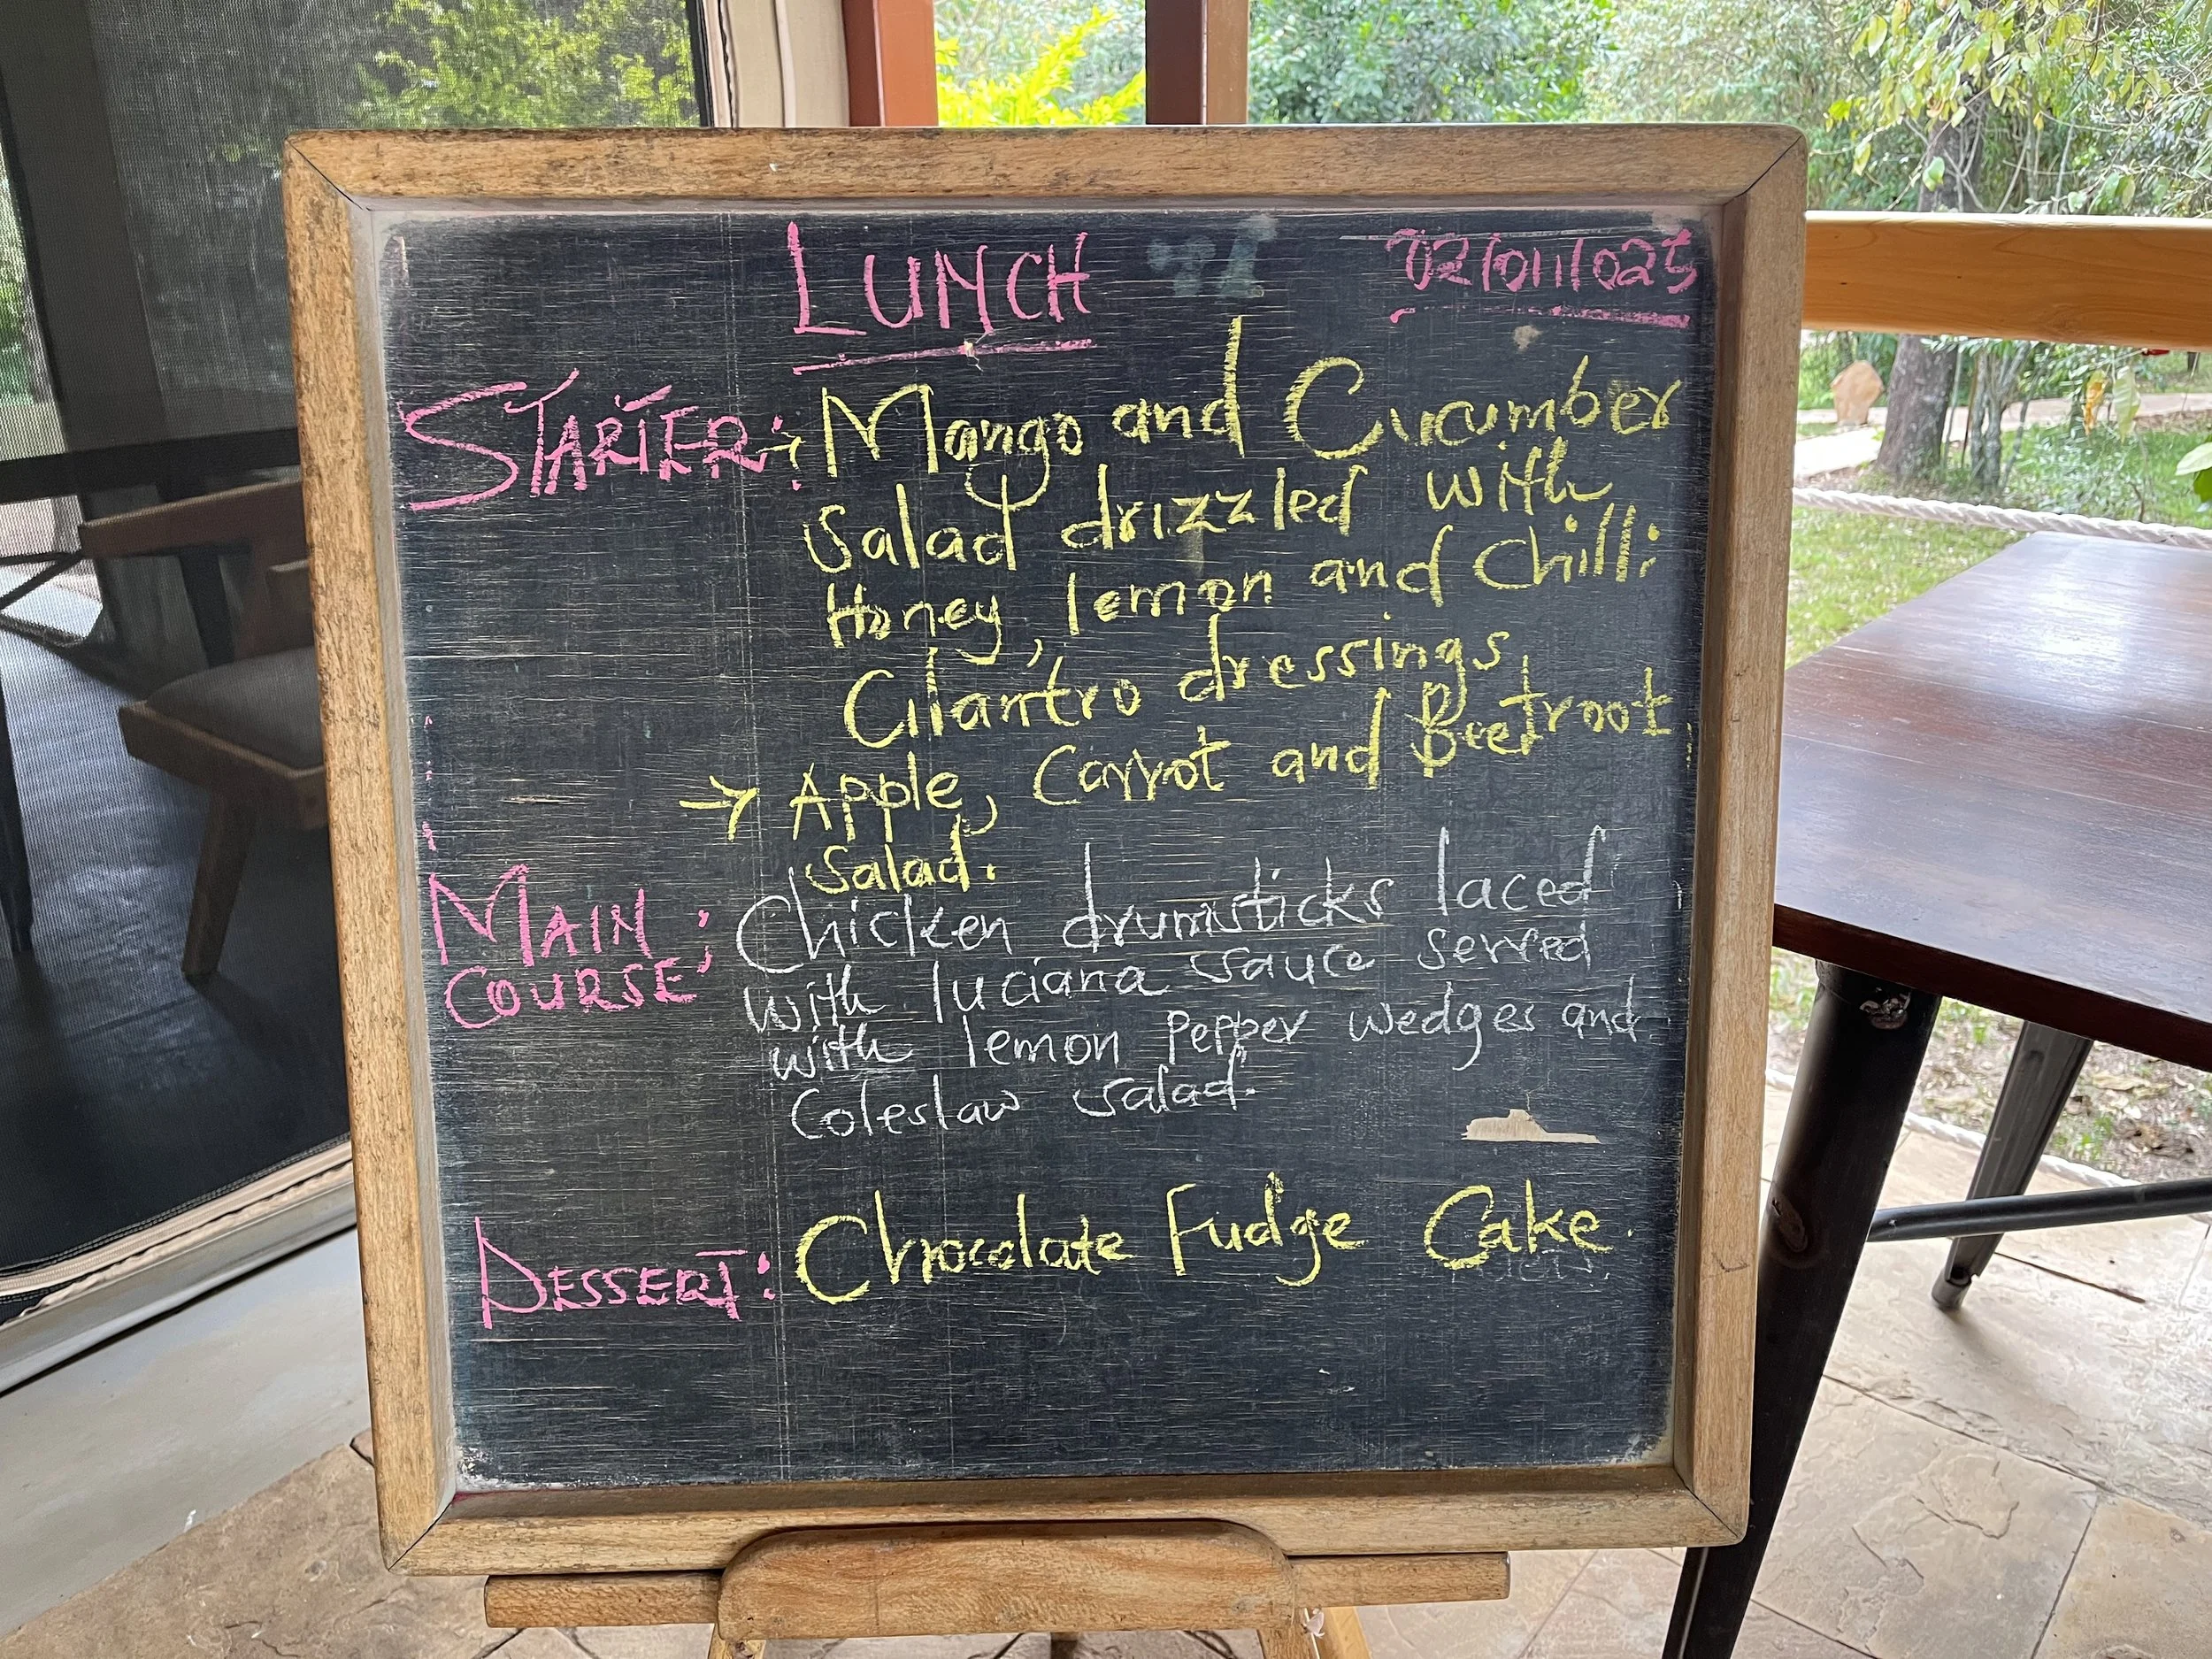 LUNCH 02/01/025
STARTER: Mango and Cucumber
Salad drizzled with
Honey, lemon and Chilli
Cilantro dressings
→ Apple, Carrot and Beetroot
Salad.
MAIN COURSE: Chicken drumsticks laced
with luciana sauce served
with lemon Pepper wedges and
Coleslaw salad.
DESSERT: Chocolate Fudge Cake.